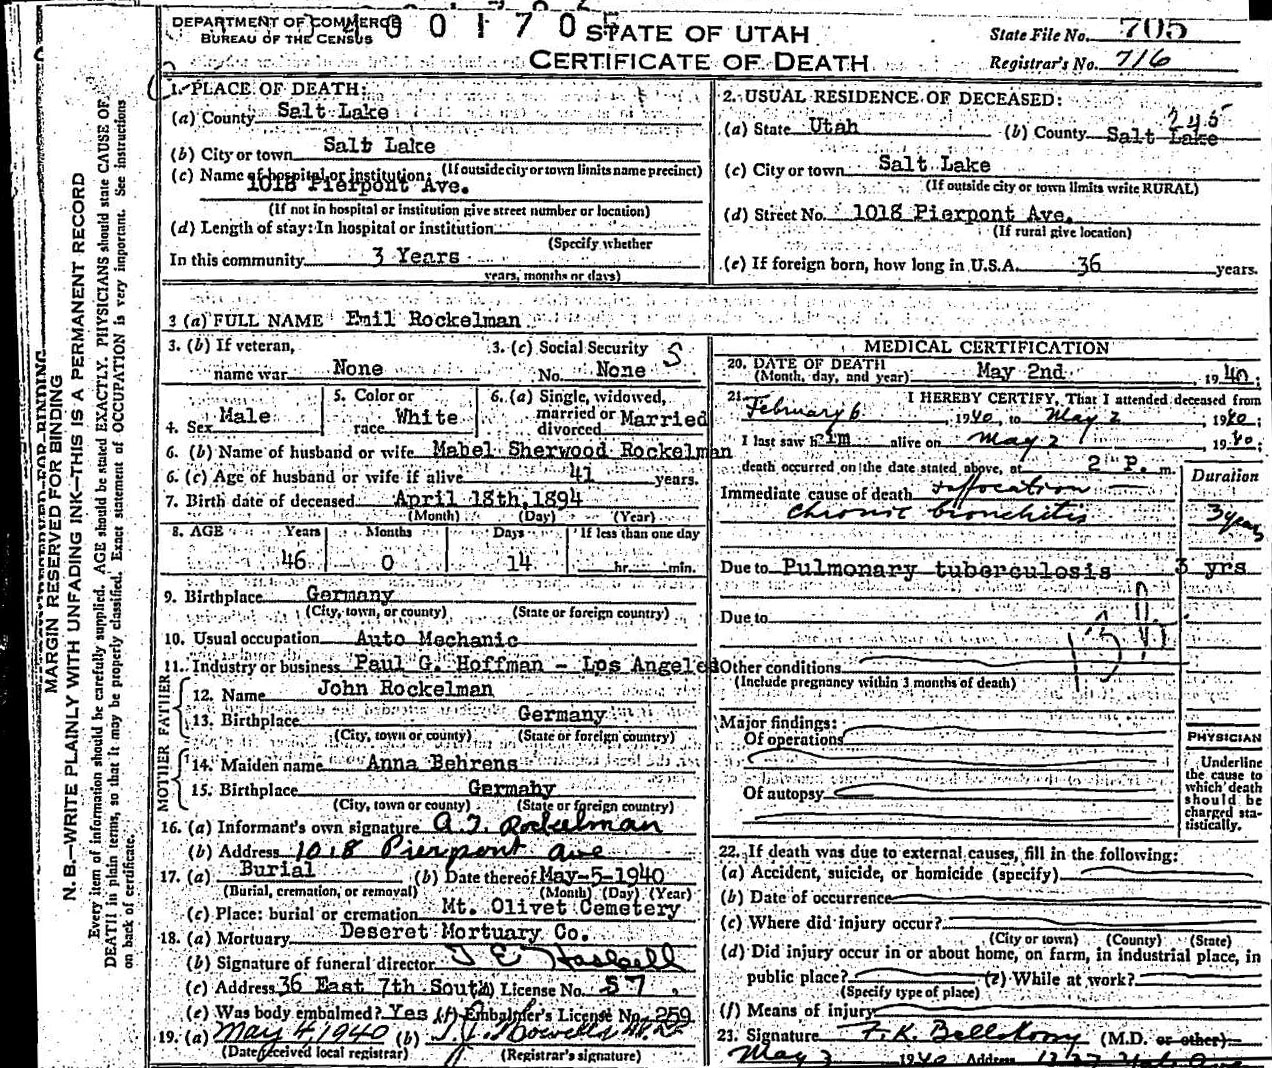 DEPARTMENT OF COMMERCE
BUREAU OF THE CENSUS
0 0 1 7 0 5
STATE OF UTAH
CERTIFICATE OF DEATH
State File No. 705
Registrar's No. 716
MARGIN RESERVED FOR BINDING
N. B.—WRITE PLAINLY WITH UNFADING INK—THIS IS A PERMANENT RECORD
Every item of information should be carefully supplied. AGE should be stated EXACTLY. PHYSICIANS should state CAUSE OF
DEATH in plain terms, so that it may be properly classified. Exact statement of OCCUPATION is very important. See instructions
on back of certificate.
1. PLACE OF DEATH:
(a) County Salt Lake
(b) City or town Salt Lake
(If outside city or town limits name precinct)
(c) Name of hospital or institution:
1018 Pierpont Ave.
(If not in hospital or institution give street number or location)
(d) Length of stay: In hospital or institution
(Specify whether
In this community 3 Years
years, months or days)
2. USUAL RESIDENCE OF DECEASED:
(a) State Utah (b) County Salt Lake
(c) City or town Salt Lake
(If outside city or town limits write RURAL)
(d) Street No. 1018 Pierpont Ave.
(If rural give location)
(e) If foreign born, how long in U.S.A. 36 years.
3 (a) FULL NAME Emil Rockelman
3. (b) If veteran,
name war None
3. (c) Social Security
No. None S
4. Sex Male
5. Color or
race White
6. (a) Single, widowed,
married or
divorced Married
6. (b) Name of husband or wife Mabel Sherwood Rockelman
6. (c) Age of husband or wife if alive 41 years.
7. Birth date of deceased April 18th, 1894
(Month) (Day) (Year)
8. AGE Years Months Days If less than one day
46 0 14 hr. min.
9. Birthplace Germany
(City, town, or county) (State or foreign country)
10. Usual occupation Auto Mechanic
11. Industry or business Paul G. Hoffman - Los Angeles
FATHER
12. Name John Rockelman
13. Birthplace Germany
(City, town or county) (State or foreign country)
MOTHER
14. Maiden name Anna Behrens
15. Birthplace Germany
(City, town or county) (State or foreign country)
16. (a) Informant's own signature A. J. Rockelman
(b) Address 1018 Pierpont Ave
17. (a) Burial (b) Date thereof May-5-1940
(Burial, cremation, or removal) (Month) (Day) (Year)
(c) Place: burial or cremation Mt. Olivet Cemetery
18. (a) Mortuary Deseret Mortuary Co.
(b) Signature of funeral director
(c) Address 36 East 7th South (d) License No. 57
(e) Was body embalmed? Yes (f) Embalmer's License No. 259
19. (a) May 4, 1940 (b)
(Date received local registrar) (Registrar's signature)
MEDICAL CERTIFICATION
20. DATE OF DEATH
(Month, day, and year) May 2nd, 1940.
21. I HEREBY CERTIFY, That I attended deceased from
February 6, 1940, to May 2, 1940;
I last saw him alive on May 2, 1940;
death occurred on the date stated above, at 2 P. m.
Duration
Immediate cause of death suffocation
chronic bronchitis 3 years
Due to Pulmonary tuberculosis 3 yrs
Due to
Other conditions
(Include pregnancy within 3 months of death)
Major findings:
Of operations
Of autopsy
PHYSICIAN
Underline
the cause to
which death
should be
charged sta-
tistically.
22. If death was due to external causes, fill in the following:
(a) Accident, suicide, or homicide (specify)
(b) Date of occurrence
(c) Where did injury occur?
(City or town) (County) (State)
(d) Did injury occur in or about home, on farm, in industrial place, in
public place? (e) While at work?
(Specify type of place)
(f) Means of injury
23. Signature F. K. (M.D. or other)
May 3 1940 Address